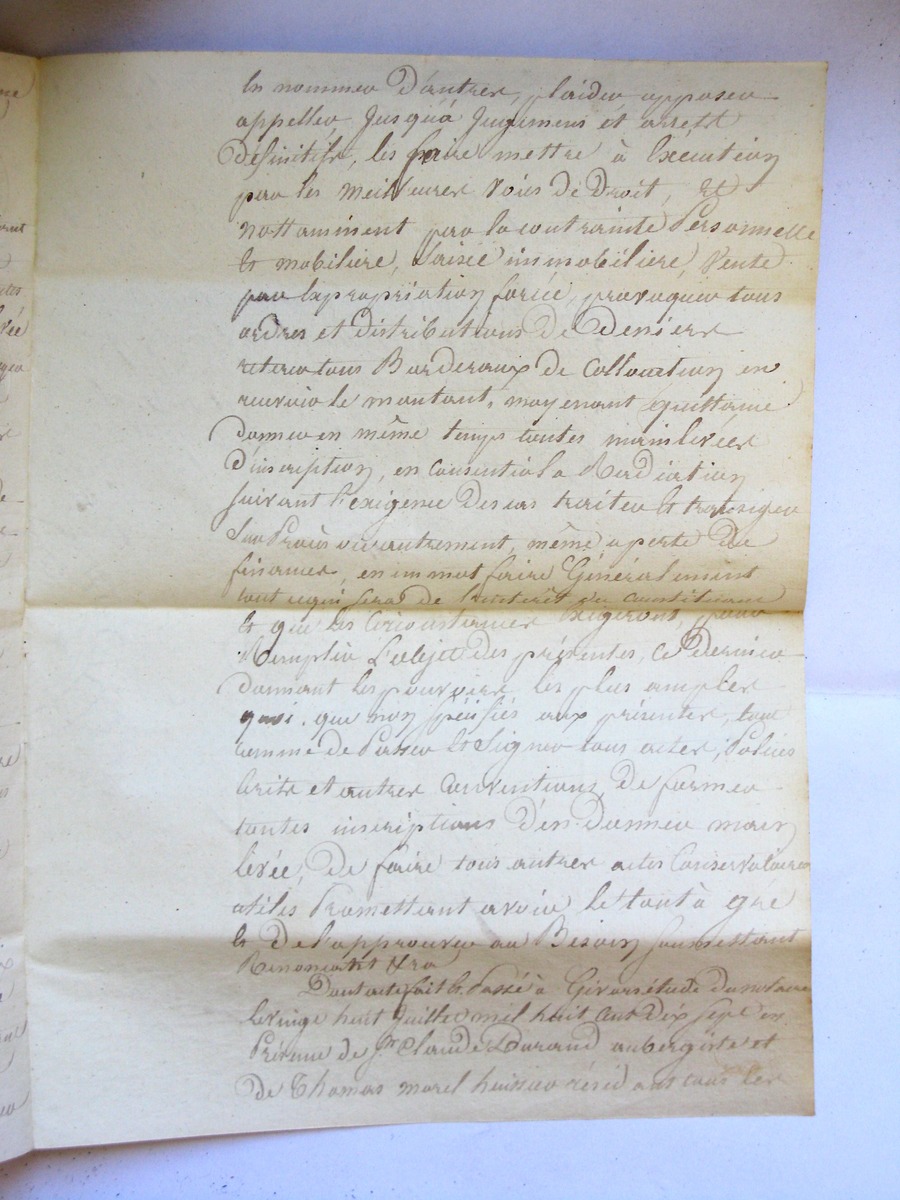 En nommer D'autres, plaider opposer
appeller Jusqu'à Jugemens et arrets
Définitifs, les faire mettre à Execution
par les meilleures voies de Droit, Et
nottamment par la contrainte Personnelle
Et mobiliere, Saisie immobiliere, Vente
par Expropriation forcée, provoquer tous
ordres et distributions De Deniers
retirer tous Borderaux de Collocation en
recevoir le montant, moyenant quittance
Donner en même temps toutes mainlevées
D'inscription, en Consentir la Radiation
suivant l'exigence Des cas traiter Et transiger
Sur Procès ou autrement, même a perte De
finances, en un mot faire Généralement
tout ce qui sera de l'interêt du Constituant
Et que les Circonstances Exigeront, pour
Remplir L'objet des présentes, Ce Dernier
Donnant les pouvoirs les plus amples
quoi que non spécifiés aux présentes, tout
comme de Passer Et Signer tous actes, Polices
Ecrits et autres Conventions, De former
toutes inscriptions D'en Donner main
levée, De faire tous autres actes Conservatoires
utiles Promettant avoir Le tout à gré
Et De l'approuver au Besoin soumettant
Renonçant &ra
Dont acte fait Et Passé à étude du notaire
Le vingt huit Juillet mil huit cent Dix sept en
Présence de Sr Claude Durand aubergiste et
de Thomas morel huissier résidants tous les